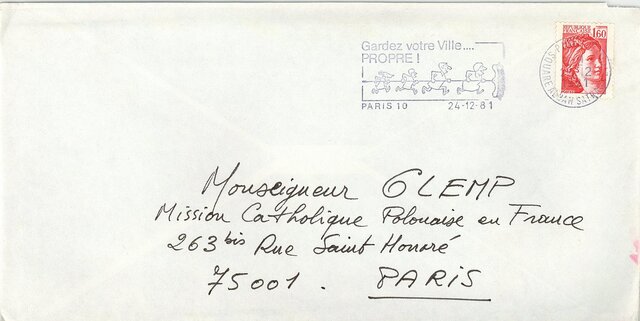 Gardez votre Ville....
PROPRE !
PARIS 10 24-12-81
REPUBLIQUE
FRANCAISE
1,60
Monseigneur GLEMP
Mission Catholique Polonaise en France
263 bis Rue Saint Honoré
75001. PARIS